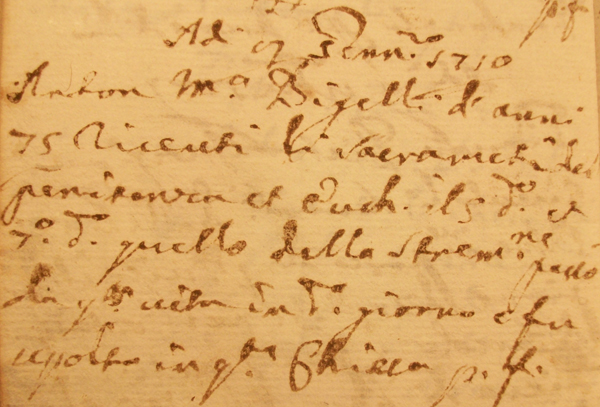 p. f.
Adi 17 Genn.ro 1710
Anton M.a Bigell.i d'anni
75 riceuti li Sacrameti dei
penitenza et Euch. il 5 d.o et
7.o d.o quello della strem.ne
passò
da q.ta uita in d.o giorno e fu
sepolto in q.ta Chiesa p. f.